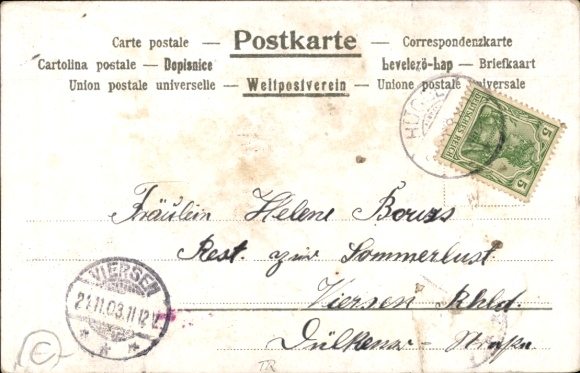 Carte postale — Postkarte — Correspondenzkarte
Cartolina postale — Dopisnice Levelező-Lap — Briefkaart
Union postale universelle — Weltpostverein — Unione postale universale
DEUTSCHES REICH
5 5
Fräulein Helene
Rest. zur Sommerlust
Viersen Rhld.
Dülkener-Straße
VIERSEN
21.11.03.11-12V.
C
TR